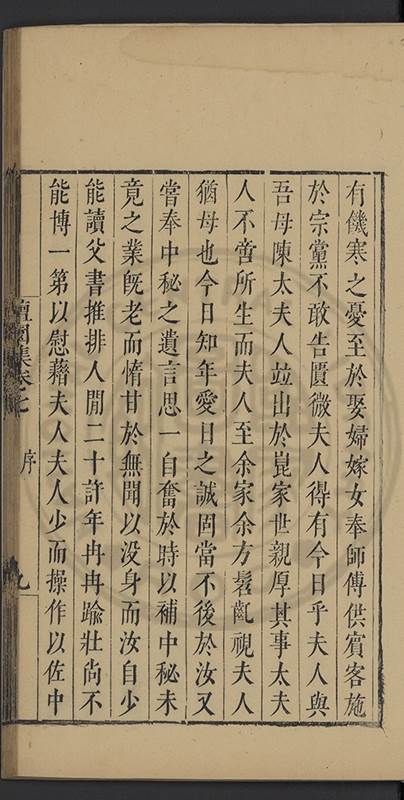 有饑寒之憂至於娶婦嫁女奉師傅供賓客施
於宗黨不敢告匱微夫人得有今日乎夫人與
吾母陳太夫人竝出於崑家世親厚其事太夫
人不啻所生而夫人至余家余方髫齓視夫人
猶母也今日知年愛日之誠固當不後於汝又
嘗奉中秘之遺言思一自奮於時以補中秘未
竟之業旣老而惰甘於無聞以没身而汝自少
能讀父書推排人閒二十許年冉冉踰壯尚不
能博一第以慰藉夫人夫人少而操作以佐中
園集卷之七
序
九